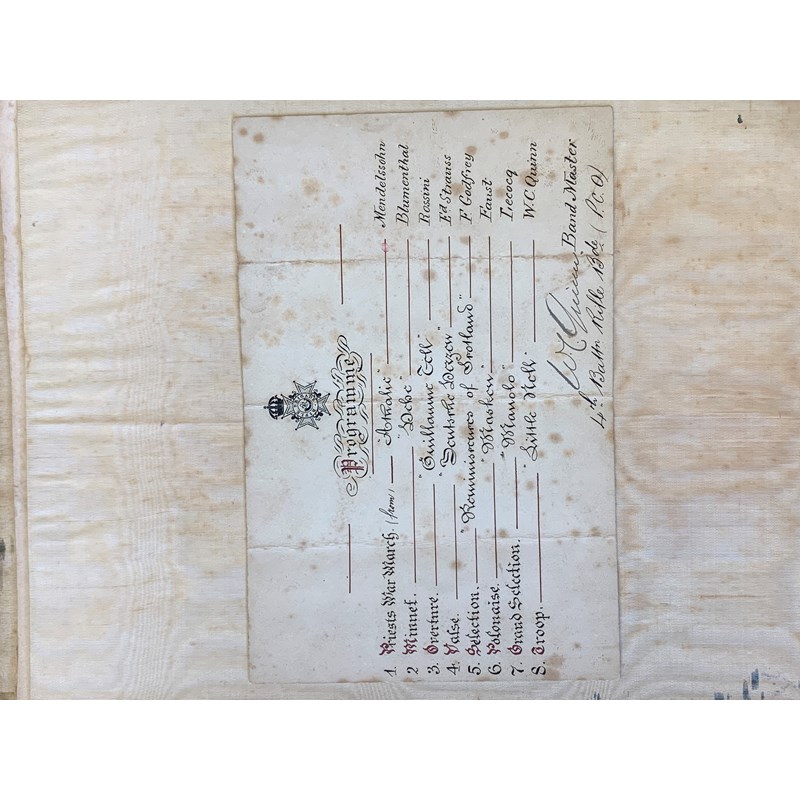 Programme
1. Priests War March. (from) "Athalie" Mendelssohn
2 Minuet. "Hebe" Blumenthal
3. Overture. "Guillaume Tell" Rossini
4. Valse. "Deutsche Herzen" Ed Strauss
5. Selection. "Reminiscences of Scotland" F Godfrey
6. Polonaise. "Masken" Faust
7. Grand Selection. "Manolo" Lecocq
8. Troop. "Little Nell" W.C Quinn
W C Quinn. Band Master
4th Battn Rifle Bde (P.C.O)